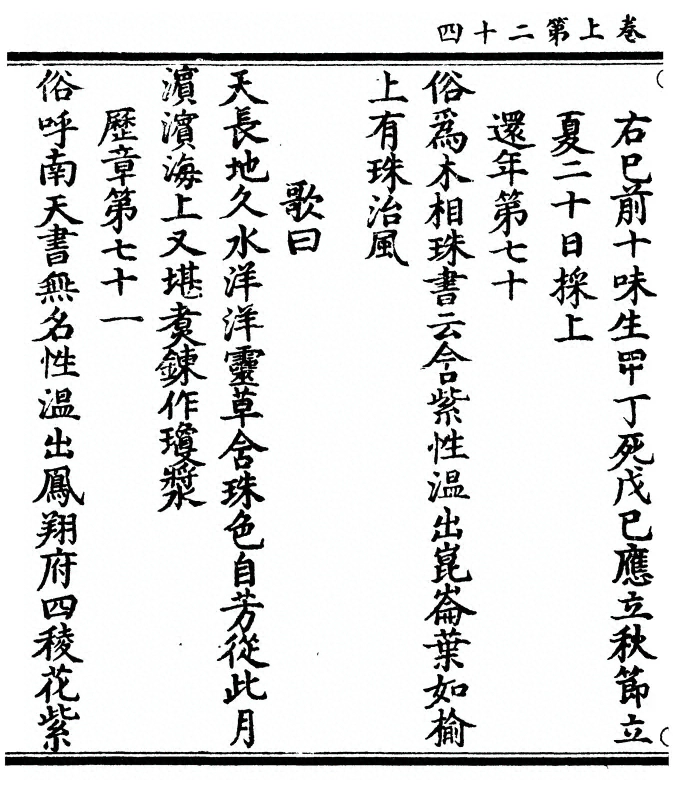 卷上第二十四
右巳前十味生甲丁死戊巳應立秋節立
夏二十日採上
還年第七十
俗爲木相珠書云含紫性溫出崑崙葉如榆
上有珠治風
歌曰
天長地久水洋洋靈草含珠色自芳從此月
濵濵海上又堪煑鍊作瓊漿
歷章第七十一
俗呼南天書無名性溫出鳳翔府四稜花紫